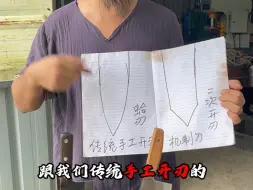 蛤刃
二次开刃
传统手工开刃
机制刃
跟我们传统手工开刃的